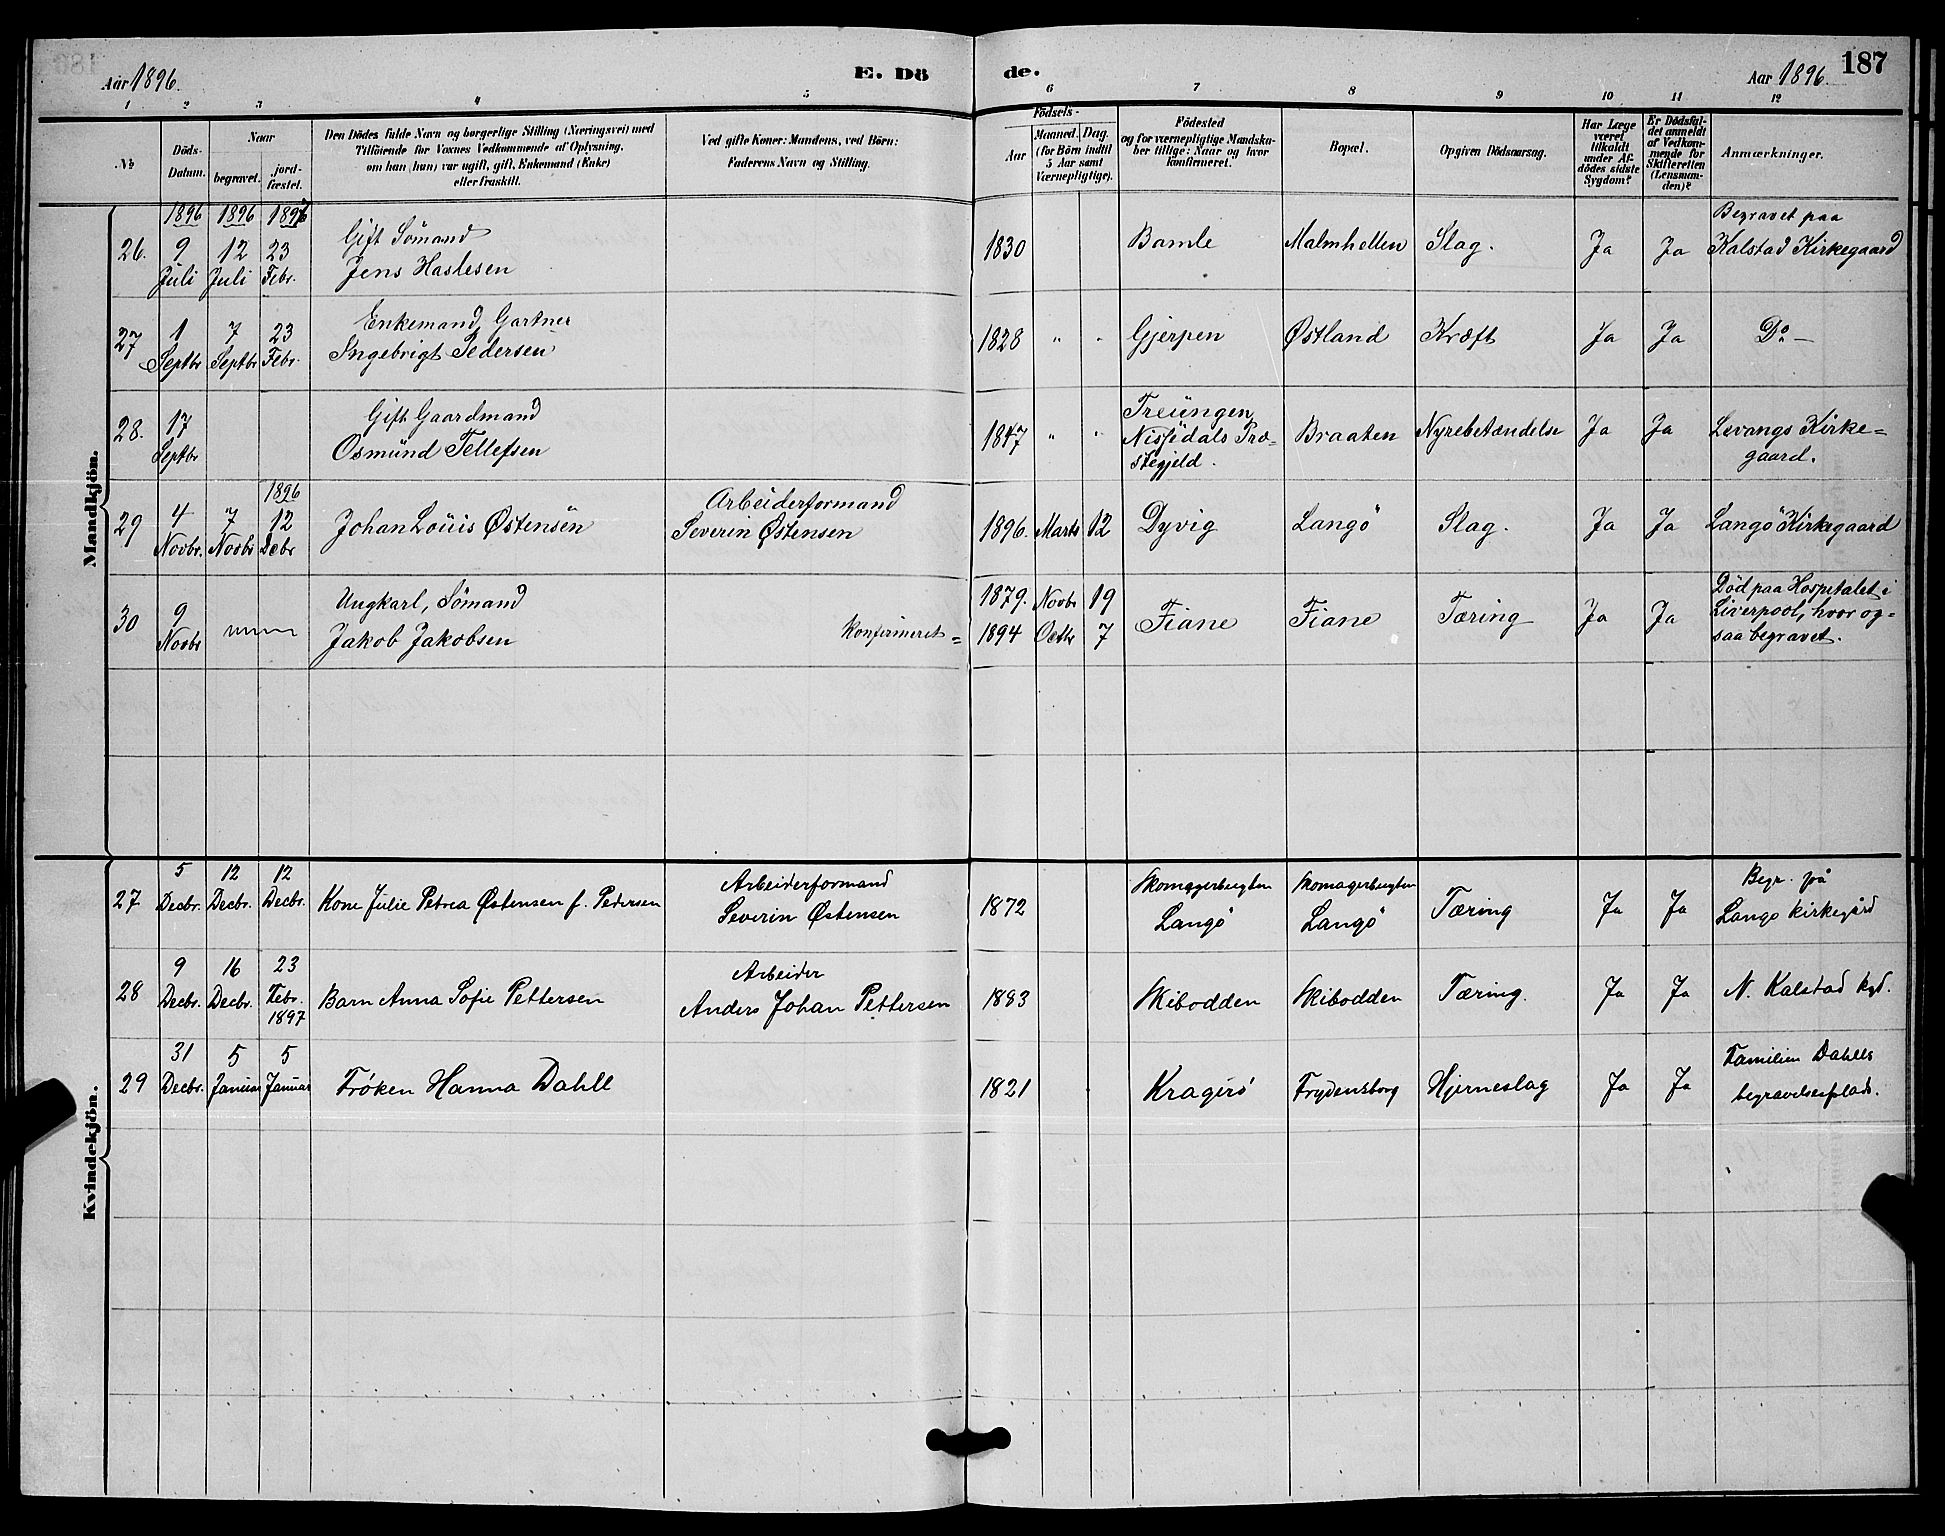 Aar 1896.
E. Dö
de.
Aar 1896.
187
1 2 3 4 5 6 7 8 9 10 11 12
№
Döds-
Datum.
Naar
begravet.
jord-
fæstet.
Den Dödes fulde Navn og borgerlige Stilling (Næringsvei) med
Tilföiende for Voxnes Vedkommende af Oplysning,
om han (hun) var ugift, gift, Enkemand (Enke)
eller fraskilt.
Ved gifte Koner: Mandens, ved Börn:
Faderens Navn og Stilling.
Födsels-
Aar
Maaned. Dag.
(for Börn indtil
5 Aar samt
Værnepligtige).
Födested
og for værnepligtige Mandska-
ber tillige: Naar og hvor
konfirmeret.
Bopæl.
Opgiven Dödsaarsag.
Har Læge
været
tilkaldt
under Af-
dödes sidste
Sygdom?
Er Dödsfal-
det anmeldt
af Vedkom-
mende for
Skifteretten
(Lensman-
den)?
Anmærkninger.
Mandkjön.
1896 1896 1897
26. 9 Juli 12 Juli 23 Febr.
Gift Sömand
Jens Haslesen
1830 Bamle Malmhellen Slag. Ja Ja
Begravet paa
Kalstad Kirkegaard
27 1 Septbr 7 Septbr 23 Febr.
Enkemand, Gartner
Ingebrigt Pedersen
1828 " " Gjerpen Østland Kræft Ja Ja Do —
28. 17 Septbr
Gift Gaardmand
Osmünd Tellefsen
1847 " "
Treüngen
Nissedals Præ-
stegjeld.
Braaten Nyrebetændelse Ja Ja
Levangs Kirke=
gaard.
1896
29 4 Novbr. 7 Novbr 12 Decbr
Johan Loüis Østensen
Arbeiderformand
Severin Østensen
1896. Marts 12 Dyvig Langö Slag. Ja Ja Langö Kirkegaard
30 9 Novbr
Ungkarl, Sömand
Jakob Jakobsen
konfirmeret =
1879. Novbr 19
1894 Octbr 7
Fiane Fiane Tæring Ja Ja
Död paa Hospitalet i
Liverpool, hvor og-
saa begravet.
Kvindekjön.
27 5 Decbr. 12 Decbr. 12 Decbr.
Kone Julie Petrea Østensen f. Pedersen
Arbeiderformand
Severin Østensen
1872
Skomagerbugten
Langö
Skomagerbugten
Langö
Tæring Ja Ja
Begr. på
Langø kirkegård
28 9 Decbr. 16 Decbr. 23 Febr. 1897
Barn Anna Sofie Pettersen
Arbeider
Anders Johan Pettersen
1883 Skibodden Skibodden Tæring. Ja Ja N. Kalstad kgd.
29 31 Decbr. 5 Januar 5 Januar
Frøken Hanna Dahll
1821 Kragerö Frydensborg Hjerneslag Ja Ja
Familien Dahlls
begravelsesplads.